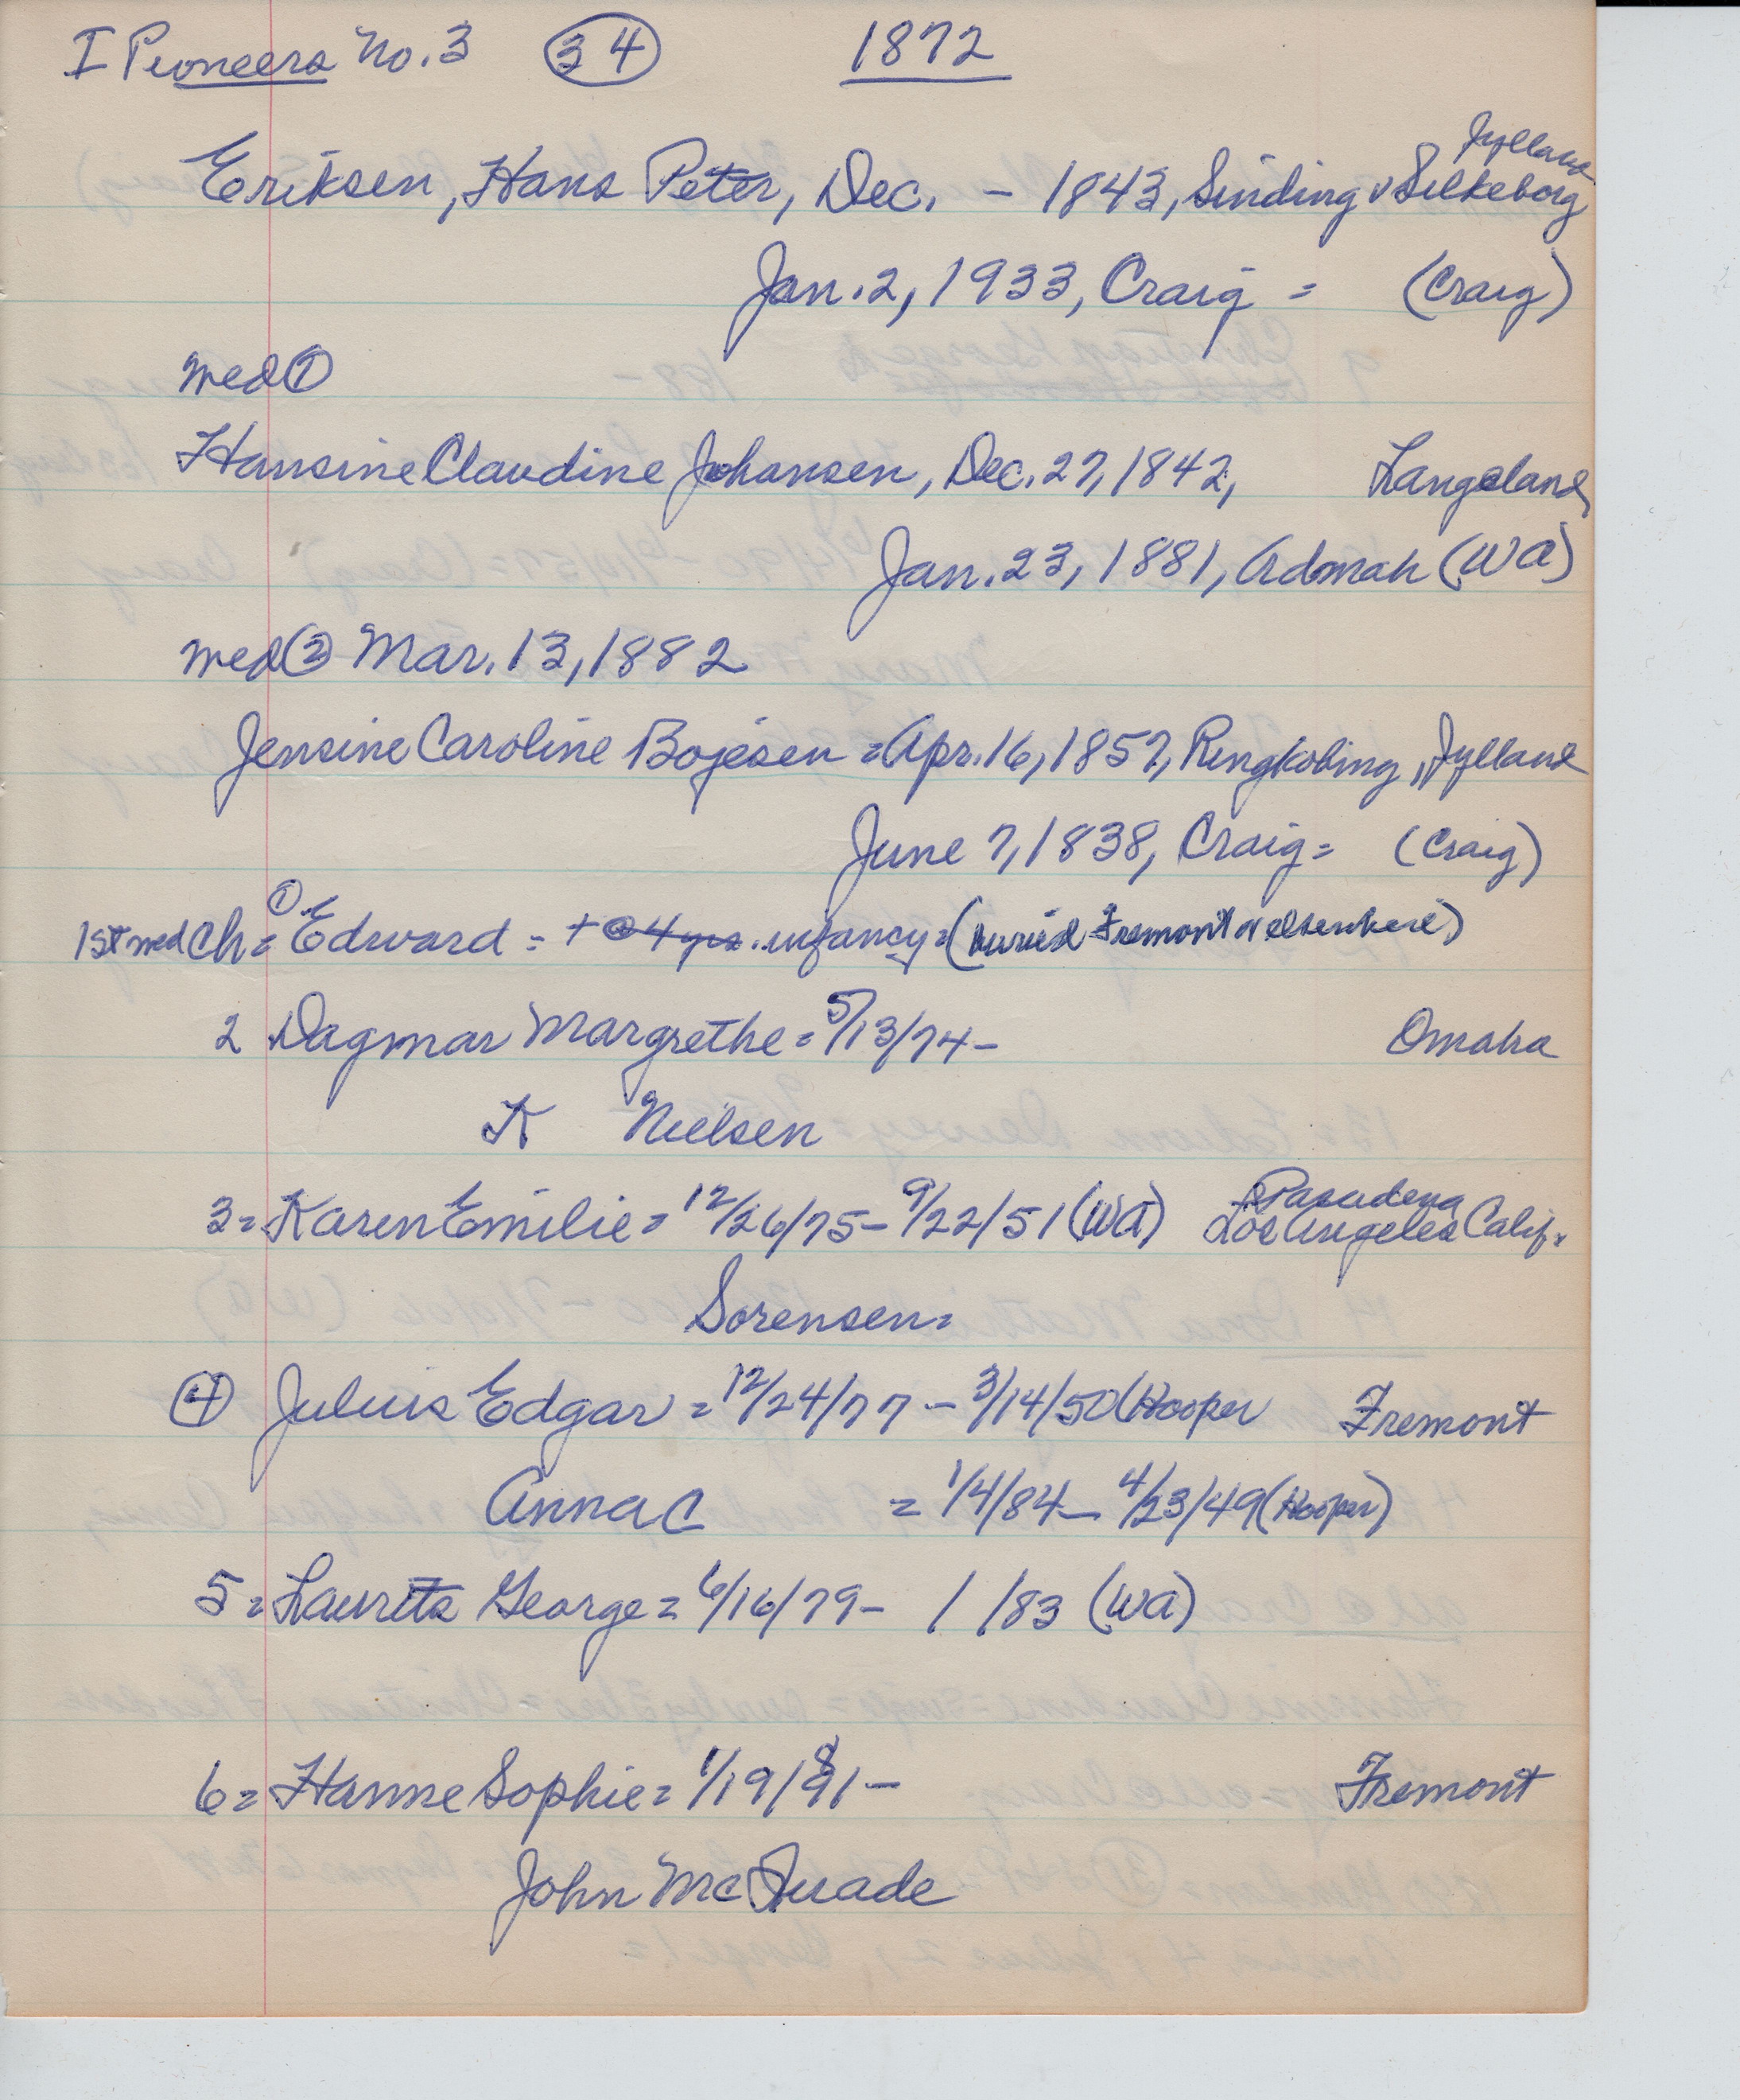 I Pioneers No. 3 (34) 1872
Jylland
Eriksen, Hans Peter, Dec. – 1843, Sinding v Silkeborg
Jan. 2, 1933, Craig = (Craig)
med ①
Hansine Claudine Johansen, Dec. 27, 1842, Langeland,
Jan. 23, 1881, Admah (WA)
med ② Mar. 13, 1882
Jensine Caroline Bojesen = Apr. 16, 1857, Ringkobing, Jylland
June 7, 1838, Craig = (Craig)
1st med Ch = ① Edward = + @ 4 yrs. infancy = (buried Fremont
2 Dagmar Margrethe = 5/13/74 – Omaha
K Nielsen
3 = Karen Emilie = 12/26/75 – 9/22/51 (WA) Pasadena
Los Angeles Calif.
Sorensen =
④ Julius Edgar = 12/24/77 – 3/14/50 (Hooper Fremont
Anna C = 1/4/84 – 4/23/49 (Hooper)
5 = Laurits George = 6/16/79 – / /83 (WA)
6 = Hanne Sophie = 1/19/81 – Fremont
John McQuade